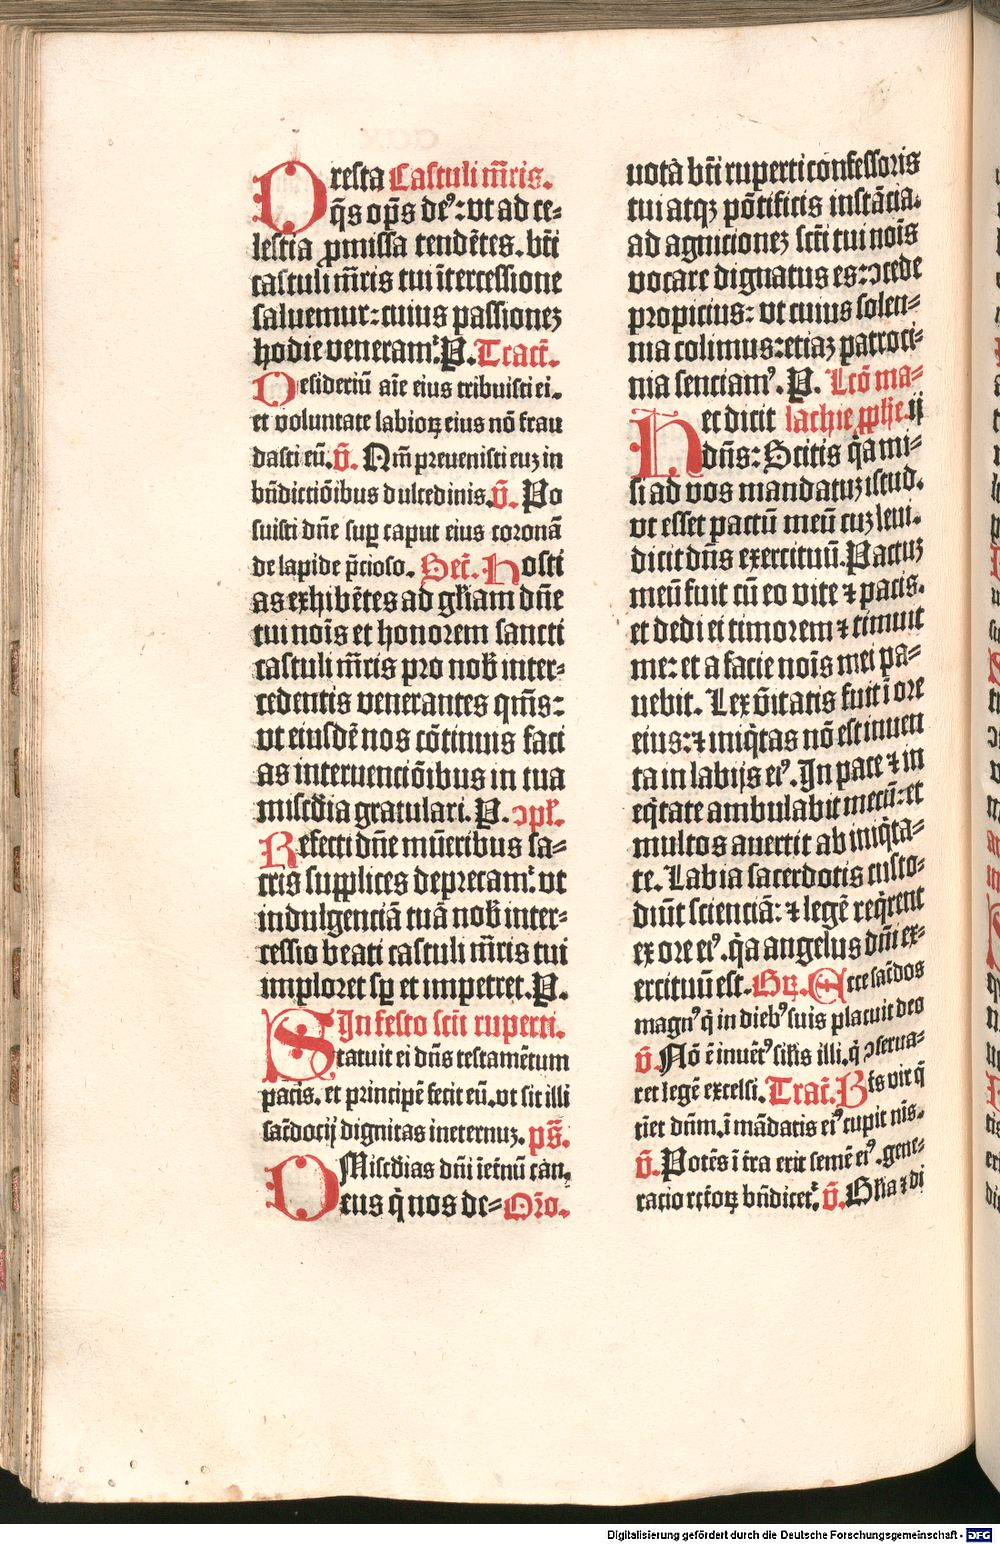 Presta Castuli m̄ris.
q̄s op̄s deꝰ: vt ad ce⸗
lestia ꝓmissa tendētes. bt̄i
castuli m̄ris tui ītercessione
saluemur: cuius passionez
hodie veneram᷑. P. Tract̄.
Desideriū aīe eius tribuisti ei.
et voluntate labioꝝ eius nō frau
dasti eū. v̄. Qm̄ preuenisti euz in
bn̄dictiōibus dulcedinis. v̄. Po
suisti dn̄e suꝑ caput eius coronā
de lapide p̄cioso. Sec̄. Hosti
as exhibētes ad gl̄iam dn̄e
tui noīs et honorem sancti
castuli m̄ris pro nob̄ inter⸗
cedentis venerantes qm̄s:
vt eiusdē nos cōtinuis faci
as interuenciōibus in tua
misc̄dia gratulari. P. ↄpl̄.
Refecti dn̄e mūeribus sa⸗
cris supplices deprecam᷑. vt
indulgenciā tuā nob̄ inter⸗
cessio beati castuli m̄ris tui
imploret sꝑ et impetret. P.
In festo sc̄ti ruperti.
Statuit ei dn̄s testamētum
pacis. et principē fecit eū. vt sit illi
sac̄docij dignitas ineternuz. ps̄.
Misc̄dias dn̄i īet̄nū can.
Deus q̄ nos de⸗ Or̄o.
uotā bt̄i ruperti confessoris
tui atqꝫ pōtificis instācia.
ad agnicionez sc̄ti tui noīs
vocare dignatus es: ↄcede
propicius: vt cuius solen⸗
nia colimus: etiaz patroci⸗
nia senciamꝰ. P. Lcō ma⸗
Hec dicit lachie ꝓph̄e. ij
dn̄s: Scitis q̄a mi⸗
si ad vos mandatuz istud.
vt esset pactū meū cuz leui.
dicit dn̄s exercituū. Pactuz
meū fuit cū eo vite ⁊ pacis.
et dedi ei timorem ⁊ timuit
me: et a facie noīs mei pa⸗
uebit. Lex v̄itatis fuit ī ore
eius: ⁊ iniq̄tas nō est inuen
ta in labijs eiꝰ. In pace ⁊ in
eq̄tate ambulabit mecū: et
multos auertit ab iniq̄ta⸗
te. Labia sacerdotis custo⸗
diūt scienciā: ⁊ legē req̄rent
ex ore eiꝰ. q̄a angelus dn̄i ex⸗
ercituū est. Gꝝ. Ecce sac̄dos
magnꝰ q̄ in diebꝰ suis placuit deo
v̄. Nō ē inuētꝰ sil̄is illi. q̄ ↄserua⸗
ret legē excelsi. Trac̄t. Bt̄s vir q̄
tīet dn̄m. ī mādatis eiꝰ cupit nīs.
v̄. Potēs ī t̄ra erit semē eiꝰ. gene⸗
racio rc̄toꝝ bn̄dicet᷑. v̄. Gl̄ia ⁊ di
Digitalisierung gefördert durch die Deutsche Forschungsgemeinschaft - DFG